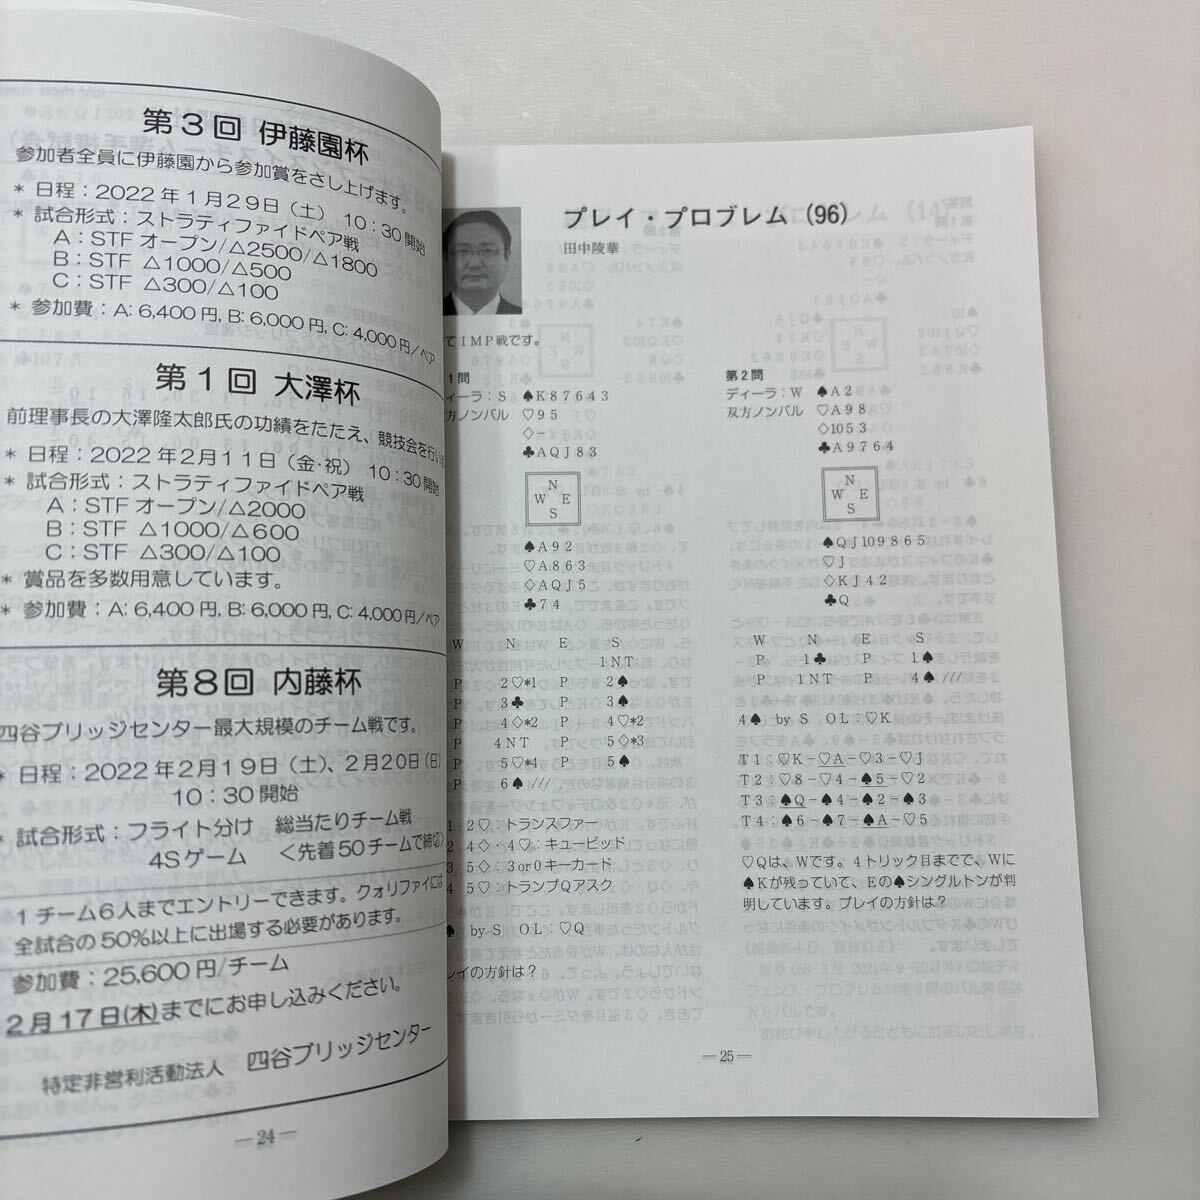 第3回 伊藤園杯
参加者全員に伊藤園から参加賞をさし上げます。
* 日程:2022年1月29日(土) 10:30開始
* 試合形式:ストラティファイドペア戦
A:STFオープン/△2500/△1800
B:STF △1000/△500
C:STF △300/△100
* 参加費:A:6,400円, B:6,000円, C:4,000円/ペア
第1回 大澤杯
前理事長の大澤隆太郎氏の功績をたたえ、競技会を行い
* 日程:2022年2月11日(金・祝) 10:30開始
* 試合形式:ストラティファイドペア戦
A:STFオープン/△2000
B:STF △1000/△600
C:STF △300/△100
* 賞品を多数用意しています。
* 参加費:A:6,400円, B:6,000円, C:4,000円/ペア
第8回 内藤杯
四谷ブリッジセンター最大規模のチーム戦です。
* 日程:2022年2月19日(土)、2月20日(日)
10:30開始
* 試合形式:フライト分け 総当たりチーム戦
4Sゲーム <先着50チームで締切>
1チーム6人までエントリーできます。クォリファイには
全試合の50%以上に出場する必要があります。
参加費:25,600円/チーム
2月17日(木)までにお申し込みください。
特定非営利活動法人 四谷ブリッジセンター
—24—
プレイ・プロブレム(96)
田中陵華
てIMP戦です。
1問
ディーラ:S ♠K87643
方ノンバル ♡95
◇−
♣AQJ83
N
W E
S
♠A92
♡A863
◇AQJ5
♣74
W N E S
1NT
P 2♡*1 P 2♠
P 3♣ P 3♠
P 4◇*2 P 4♡*2
P 4NT P 5◇*3
P 5♡*4 P 5♠
P 6♠///
1 2♡:トランスファー
2 4◇・4♡:キュービッド
3 5◇:3or0キーカード
4 5♡:トランプQアスク
♠ by S OL:♡Q
プレイの方針は?
第2問
ディーラ:W ♠A2
双方ノンバル ♡A98
◇1053
♣A9764
N
W E
S
♠QJ109865
♡J
◇KJ42
♣Q
W N E S
P 1♣ P 1♠
P 1NT P 4♠///
4♠ by S OL:♡K
T1:♡K−♡A−♡3−♡J
T2:♡8−♡4−♠5−♡2
T3:♠Q−♠4−♠2−♠3
T4:♠6−♠7−♠A−♡5
♡Qは、Wです。4トリック目までで、Wに
♠Kが残っていて、Eの♠シングルトンが判
明しています。プレイの方針は?
—25—